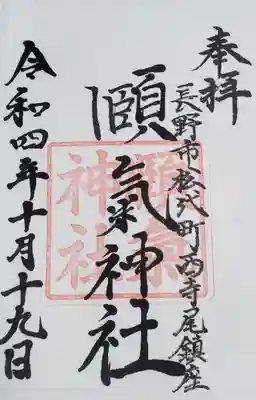 奉拝
長野市松代町西寺尾鎮座
頤気神社
令和四年十月十九日
頤氣神社